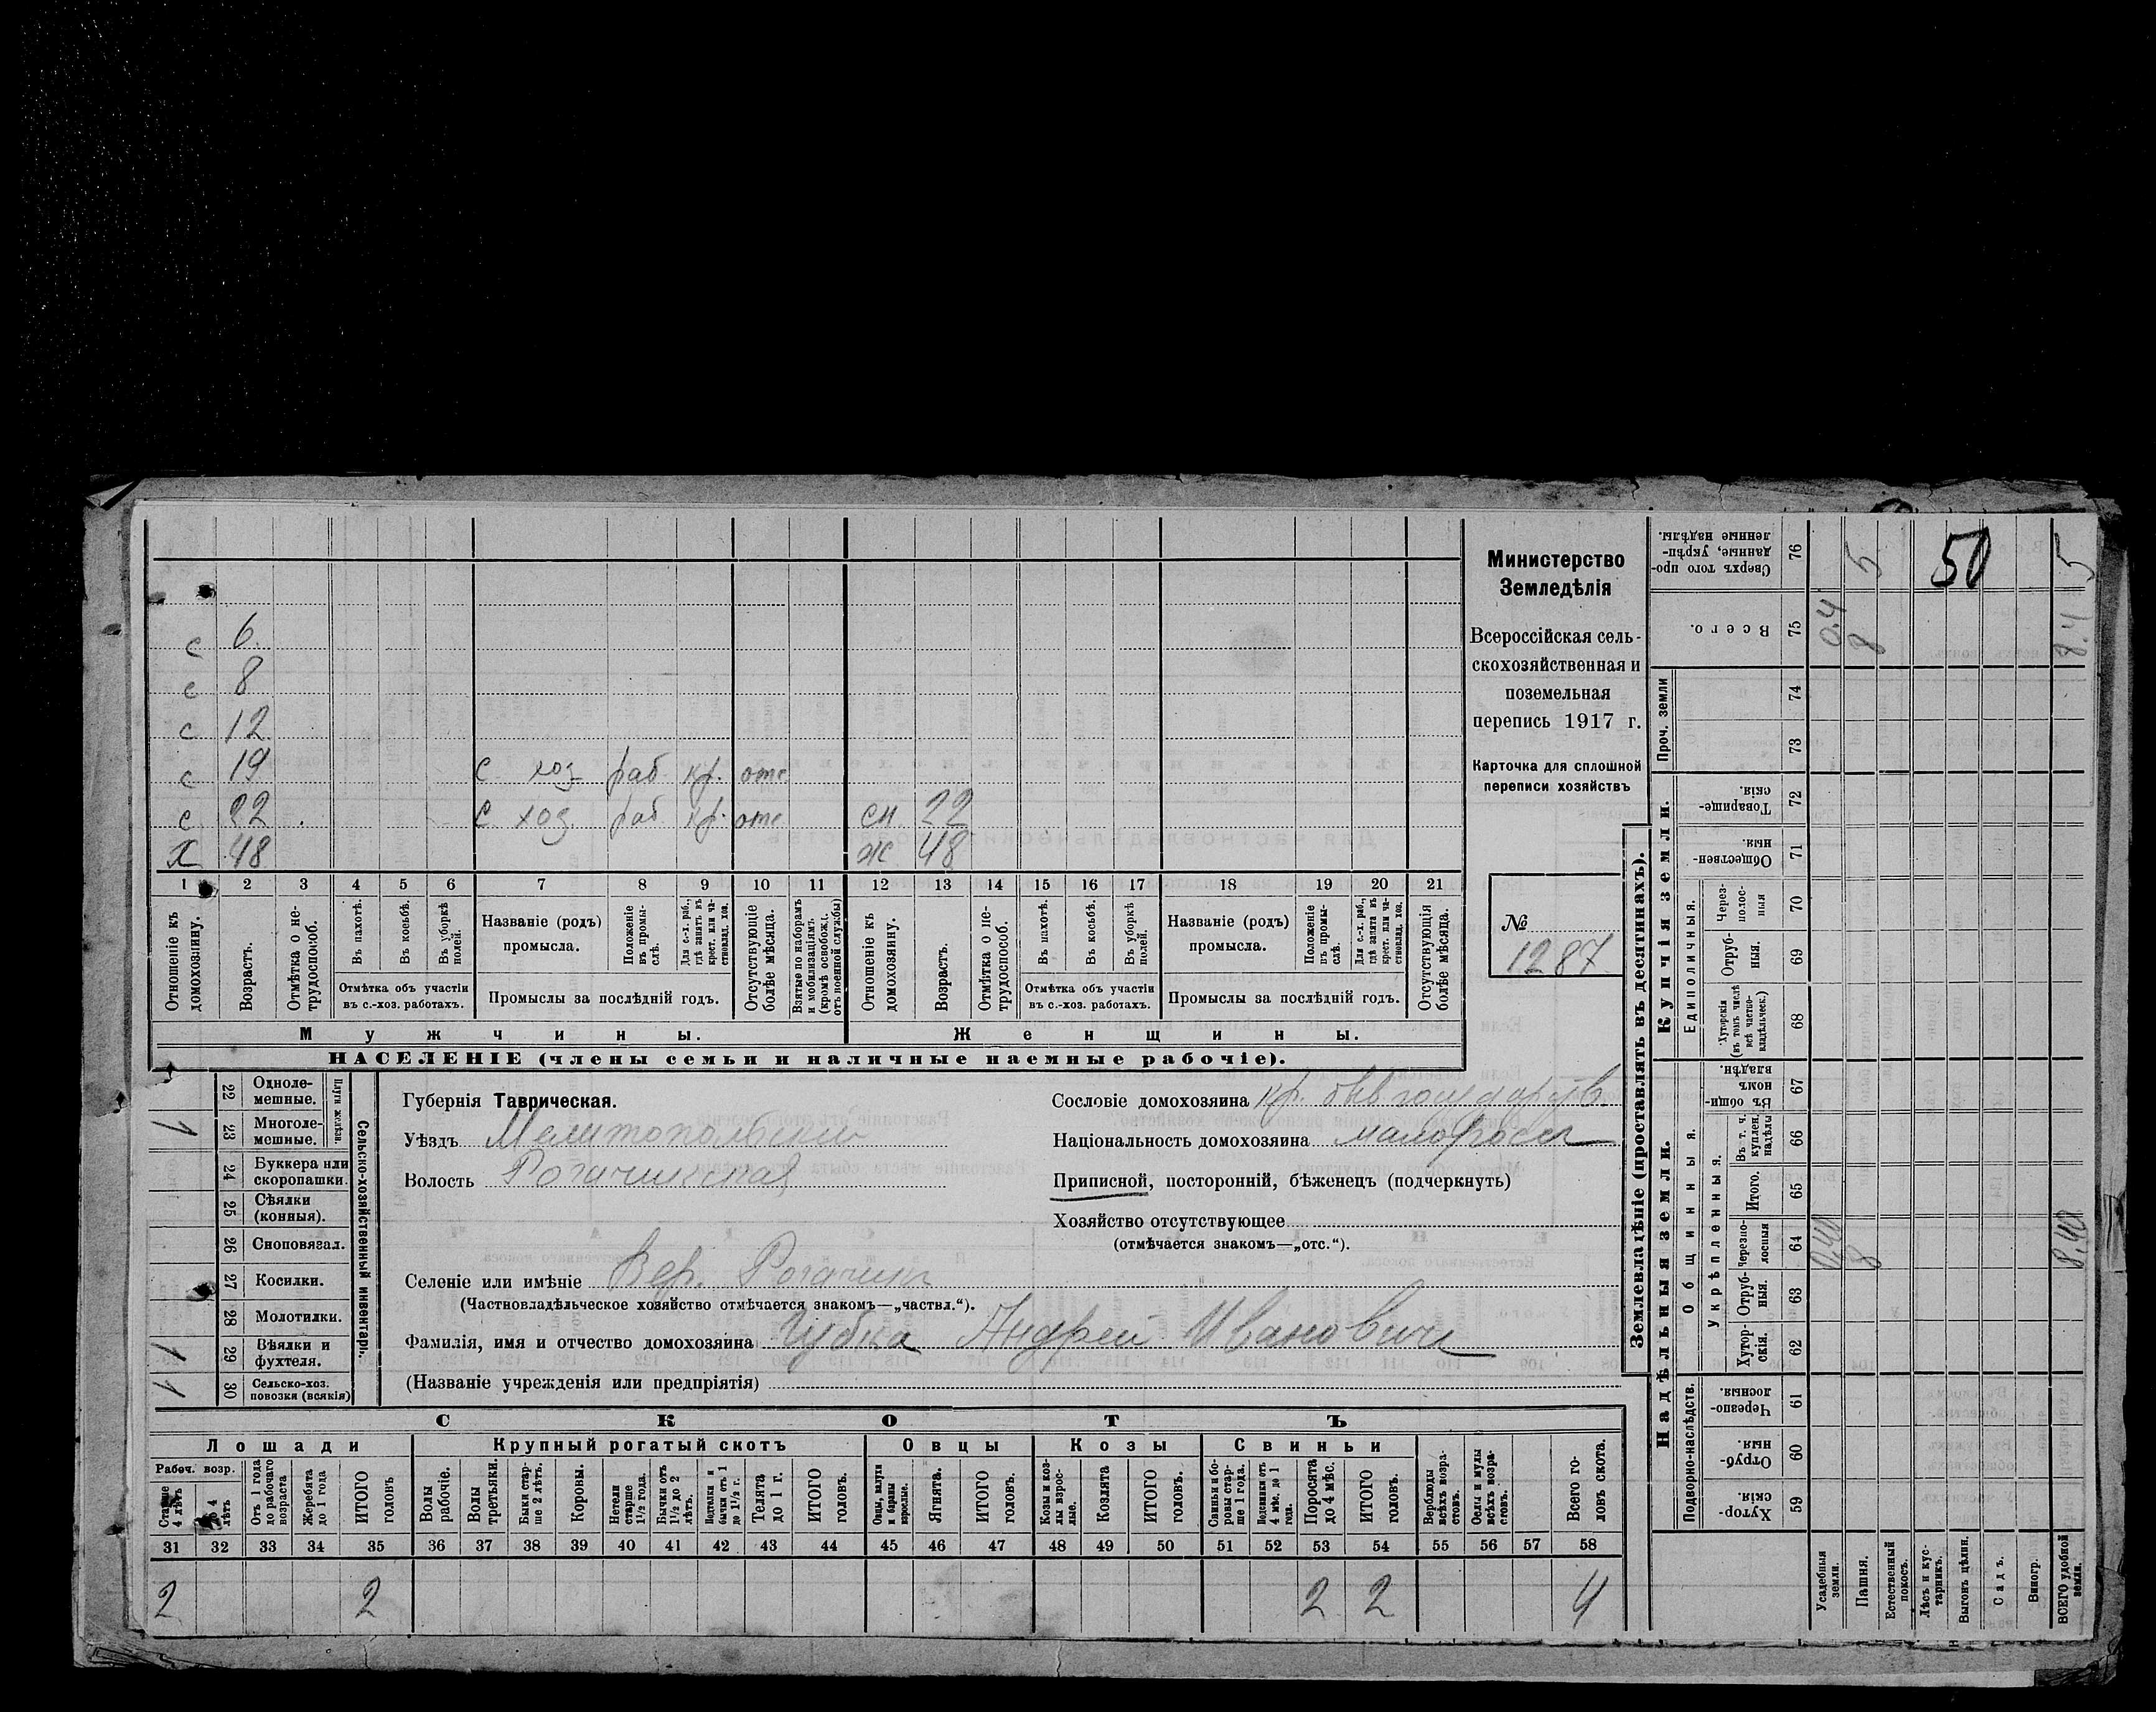 с 6
с 8
с 12
с 19 с хоз раб кр. отс
с 22 с хоз. раб кр. отс сн 22
х 48 ж 48
1 2 3 4 5 6 7 8 9 10 11 12 13 14 15 16 17 18 19 20 21
Отношеніе къ домохозяину.
Возрастъ.
Отмѣтка о нетрудоспособ.
Въ пахотѣ.
Въ косьбѣ.
Въ уборкѣ полей.
Отмѣтка объ участіи въ с.-хоз. работахъ.
Названіе (родъ) промысла.
Положеніе въ промыслѣ.
Для с.-х. раб., гдѣ занятъ въ крест. или частновлад. хоз.
Промыслы за послѣдній годъ.
Отсутствующіе болѣе мѣсяца.
Взятые по наборамъ и мобилизаціямъ (кромѣ освобожд. отъ военной службы)
Отношеніе къ домохозяину.
Возрастъ.
Отмѣтка о нетрудоспособ.
Въ пахотѣ.
Въ косьбѣ.
Въ уборкѣ полей.
Отмѣтка объ участіи въ с.-хоз. работахъ.
Названіе (родъ) промысла.
Положеніе въ промыслѣ.
Для с.-х. раб., гдѣ занята въ крест. или частновлад. хоз.
Промыслы за послѣдній годъ.
Отсутствующія болѣе мѣсяца.
Мужчины. Женщины.
НАСЕЛЕНІЕ (члены семьи и наличные наемные рабочіе).
Министерство
Земледѣлія
Всероссійская сель-
скохозяйственная и
поземельная
перепись 1917 г.
Карточка для сплошной
переписи хозяйствъ
№
1287
Сельско-хозяйственный инвентарь.
Плуги желѣзн.
22 Однолемешные.
23 Многолемешные. 1
24 Буккера или скоропашки.
25 Сѣялки (конныя).
26 Сноповязал.
27 Косилки.
28 Молотилки.
29 Вѣялки и фухтеля. 1
30 Сельско-хоз. повозки (всякія) 1
Губернія Таврическая.
Уѣздъ Мелитопольский
Волость Рогачинская
Селеніе или имѣніе Вер. Рогачик
(Частновладѣльческое хозяйство отмѣчается знакомъ—„частвл.“).
Фамилія, имя и отчество домохозяина Губка Андрей Иванович
(Названіе учрежденія или предпріятія)
Сословіе домохозяина кр. быв государств.
Національность домохозяина малоросс
Приписной, посторонній, бѣженецъ (подчеркнуть)
Хозяйство отсутствующее
(отмѣчается знакомъ—„отс.“).
СКОТЪ
Лошади Крупный рогатый скотъ Овцы Козы Свиньи
Рабоч. возр.
Старше 4 лѣтъ
До 4 лѣтъ
Отъ 1 года до рабочаго возраста
Жеребята до 1 года
ИТОГО головъ
Волы рабочіе.
Волы третьяки.
Быки старше 2 лѣтъ.
Коровы.
Нетели старше 1½ года.
Бычки отъ 1½ до 2 лѣтъ.
Подтелки и бычки отъ 1 до 1½ г.
Телята до 1 г.
ИТОГО головъ.
Овцы, валухи и бараны взрослые.
Ягнята.
ИТОГО головъ.
Козы и козлы взрослые.
Козлята
ИТОГО головъ.
Свиньи и боровы старше 1 года.
Подсвинки отъ 4 мѣс. до 1 года.
Поросята до 4 мѣс.
ИТОГО головъ.
Верблюды всѣхъ возрастовъ.
Ослы и мулы всѣхъ возрастовъ.
Всего головъ скота.
31 32 33 34 35 36 37 38 39 40 41 42 43 44 45 46 47 48 49 50 51 52 53 54 55 56 57 58
2 2 2 2 4
Землевладѣніе (проставлять въ десятинахъ).
Надѣльныя земли. Купчія земли.
Подворно-наслѣдств.
Общинныя.
Укрѣпленныя.
Единоличныя.
Проч. земли
Сверхъ того проданные, укрѣпленные надѣлы. 76 5 50 5
Всего. 75 0.4 8 8.4
74
73
Товарищескія 72
Общественныя. 71
Черезполосныя 70
Отрубныя. 69
Хуторскія (въ томъ числѣ всѣ частновладѣльческ.) 68
Въ общинномъ владѣн. 67
Въ т. ч. куплен. надѣлы 66
Итого. 65
Черезполосныя 64 0,40 8 8.40
Отрубныя. 63
Хуторскія. 62
Черезполосныя 61
Отрубныя. 60
Хуторскія. 59
Усадебныя земли.
Пашня.
Естественный покосъ.
Лѣсъ и кустарникъ.
Выгонъ цѣлин.
Садъ.
Виногр.
ВСЕГО удобной земли.